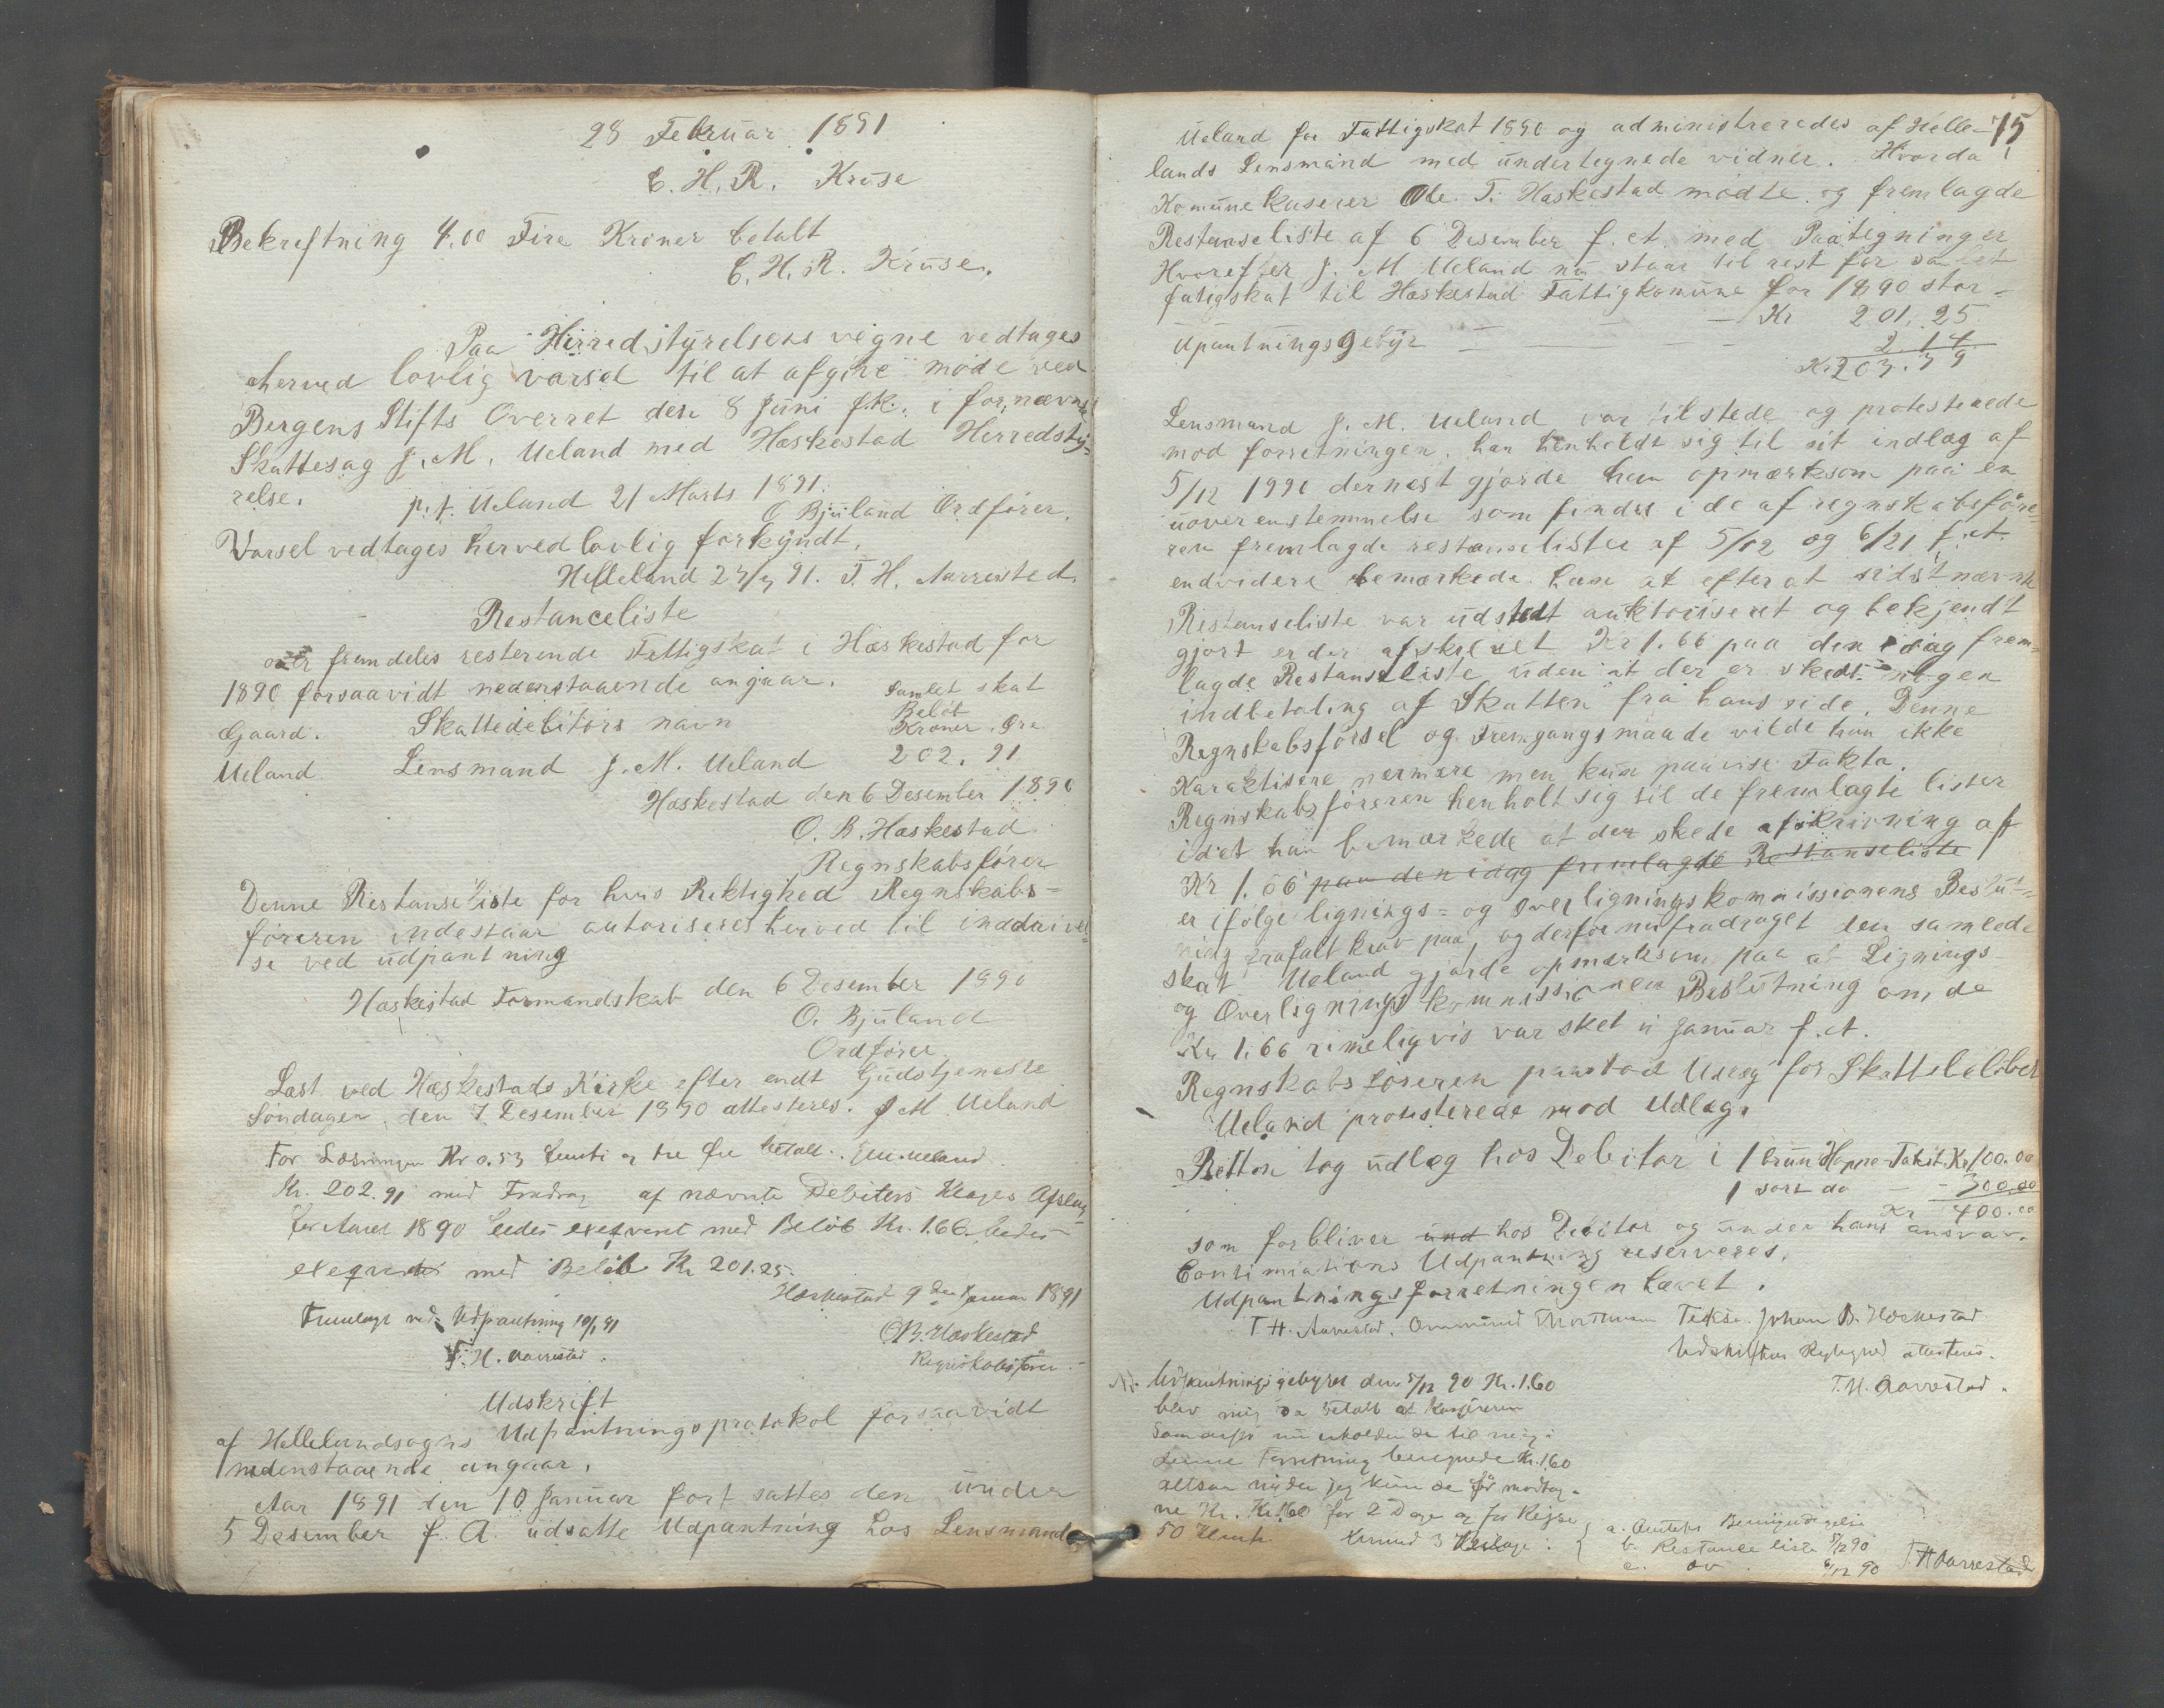 28 Februar 1891
C. H. R. Kruse
Bekreftning 4.00 Fire Kroner betalt
C. H. R. Kruse.
Paa Herredstyrelsens vegne vedtages
herved lovlig varsel til at afgive møde ved
Bergens Stifts Overret den 8 Juni f.k. i fornævnte
Skattesag J. M. Ueland med Hæskestad Herredsty-
relse.
p.t. Ueland 21 Marts 1891.
O Bjuland Ordfører.
Varsel vedtages herved lovlig forkyndt.
Helleland 23/3 91. T. H. Aarrestad.
Restanceliste
over fremdeles resterende Fattigskat i Hæskestad for
1890 forsaavidt nedenstaaende angaar.
Samlet skat
Beløb
Gaard. Skattedebitors navn Kroner. Øre
Ueland Lensmand J. M. Ueland 202. 91
Hæskestad den 6 Desember 1890
O. B. Hæskestad
Regnskabsfører
Denne Restanseliste for hvis Rektighed Regnskabs=
føreren indestaar autoriseres herved til inddrivel-
se ved udpantning
Hæskestad Formandskab den 6 Desember 1890
O. Bjuland
Ordfører
Læst ved Hæskestads Kirke efter endt Gudstjeneste
Søndagen den 7 Desember 1890 attesteres. J M Ueland
For Læsningen Kr 0.53 femti og tre Øre betalt. J.M. Ueland
Kr. 202.91 med Fradrag af nævnte Debitors Klages Afslag
for Aaret 1890 bedes exeqveret med Beløb Kr. 1.66 bedes
exeqveres med Beløb Kr 201.25.
Hæskestad 9de Januar 1891
Fremlagt ved Udpantning 10/1 91
O B. Hæskestad
T. H. Aarrestad.
Regnskabsfører.
Udskrift
af Hellelandsogns Udpantningsprotokol forsaavidt
nedenstaaende angaar.
Aar 1891 den 10 Januar fortsattes den under
5 Desember f. A. udsatte Udpantning hos Lensmand
75
Ueland for Fattigskat 1890 og administreredes af Helle-
lands Lensmand med undertegnede vidner. Hvorda
Komunekaserer Ole T. Hæskestad mødte og fremlagde
Restanseliste af 6 Desember f. et. med Paategninger
Hvorefter J. M Ueland nu staar til rest for samlet
fatigskat til Hæskestad Fattigkomune for 1890 stor-
Kr 201, 25
Upantningsgebyr 2. 14
Kr 203. 39
Lensmand J. M. Ueland var tilstede og protesterede
mod forretningen. han henholdt sig til sit indlæg af
5/12 1990 dernæst gjorde han opmærksom paa en
uoverenstemmelse som findes i de af regnskabsføre-
ren fremlagde restanselister af 5/12 og 6/21 f. et.
endvidere bemærkede han at efter at sidstnævnte
Restanseliste var udstedt auktoriseret og bekjendt
gjort er der afskrevet Kr 1.66 paa den idag frem-
lagde Restanseliste uden at der er skedt nogen
indbetaling af Skatten fra hans side. Denne
Regnskabsførsel og Fremgangsmaade vilde han ikke
Karaktisere nærmere men kun paavise Fakta.
Regnskabsføreren henholt sig til de fremlagte lister
idet han bemærkede at den skede afskrivning af
Kr 1.66 paa den idag fremlagde Restanseliste
er ifølge lignings= og Overligningskommissionens Beslut-
ning frafalt krav paa, og derfor nu fradraget den samlede
skat. Ueland gjorde opmærksom paa at Lignings-
og Overligningskommissionen Beslutning om de
Kr 1.66 rimeligvis var sket i Januar f. A.
Regnskabsføreren paastod Udlæg for Skattebeløbet
Ueland protesterede mod Udlæg.
Retten tog udlæg hos Debitor i 1 brun Hoppe-Takst. Kr 100.00
1 sort do – - 300.00
Kr 400.00
som forbliver und hos Debitor og under hans ansvar.
Contimiations Udpantning reserveres.
Udpantningsforretningen hævet.
T. H. Aarrestad. Ommund Thortmun Tekse. Johan B. Hæskestad
Udskriftens Rigtighed attesteres.
T. H. Aarrestad.
N. Udpantningsgebyret den 5/12 90 Kr. 1.60
blev mig da betalt af Kassereren
denne Forretning beregnede Kr. 1.60
altsaa nyder jeg kun de får modtag-
ne Kr. Kr 1.60 for 2 Dage og for Rejse
50 Femti. Hermed 3 Beilage: a. Amtets Bemyndigelse
b. Restance liste 5/12 90
c. do 6/12 90 T. H Aarrestad